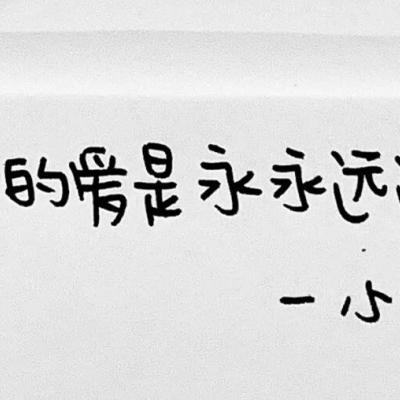 的爱是永永远
一小